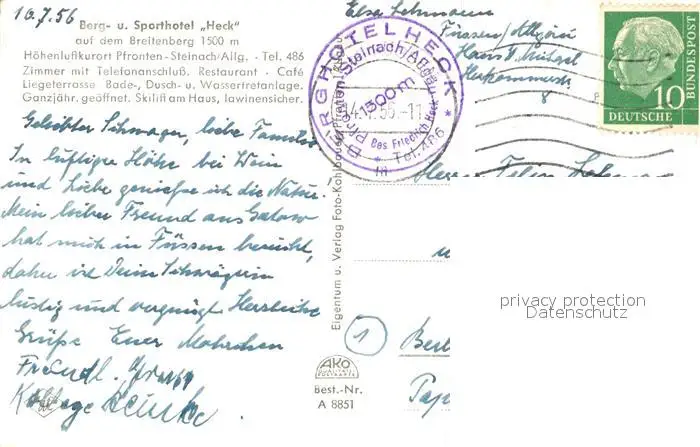 10.7.56
Berg- u. Sporthotel „Heck"
auf dem Breitenberg 1500 m
Höhenluftkurort Pfronten-Steinach/Allg. - Tel. 486
Zimmer mit Telefonanschluß. Restaurant - Café
Liegeterrasse Bade-, Dusch- u. Wassertretanlage.
Ganzjähr. geöffnet. Skilift am Haus, lawinensicher.
Geliebter Schwager, liebe Familie
In luftiger Höhe bei Wein
und Liebe genieße ich die Natur.
Mein lieber Freund aus Gatow
hat mich in Füssen besucht,
daher ist Deine Schwägerin
lustig und vergnügt Herzliche
Grüße Eurer
Freundl. Gruß
Kollege
Elsa Lehmann
Füssen/Allgäu
Haus
8
BERGHOTEL HECK
Pfronten-Steinach/Allgäu
1500 m
Bes. Friedrich Heck
Tel. 486
DEUTSCHE
BUNDESPOST
10
Herrn Felix
Eigentum u. Verlag Foto-
1
Berl
AKO
Best.-Nr.
A 8851
privacy protection
Datenschutz